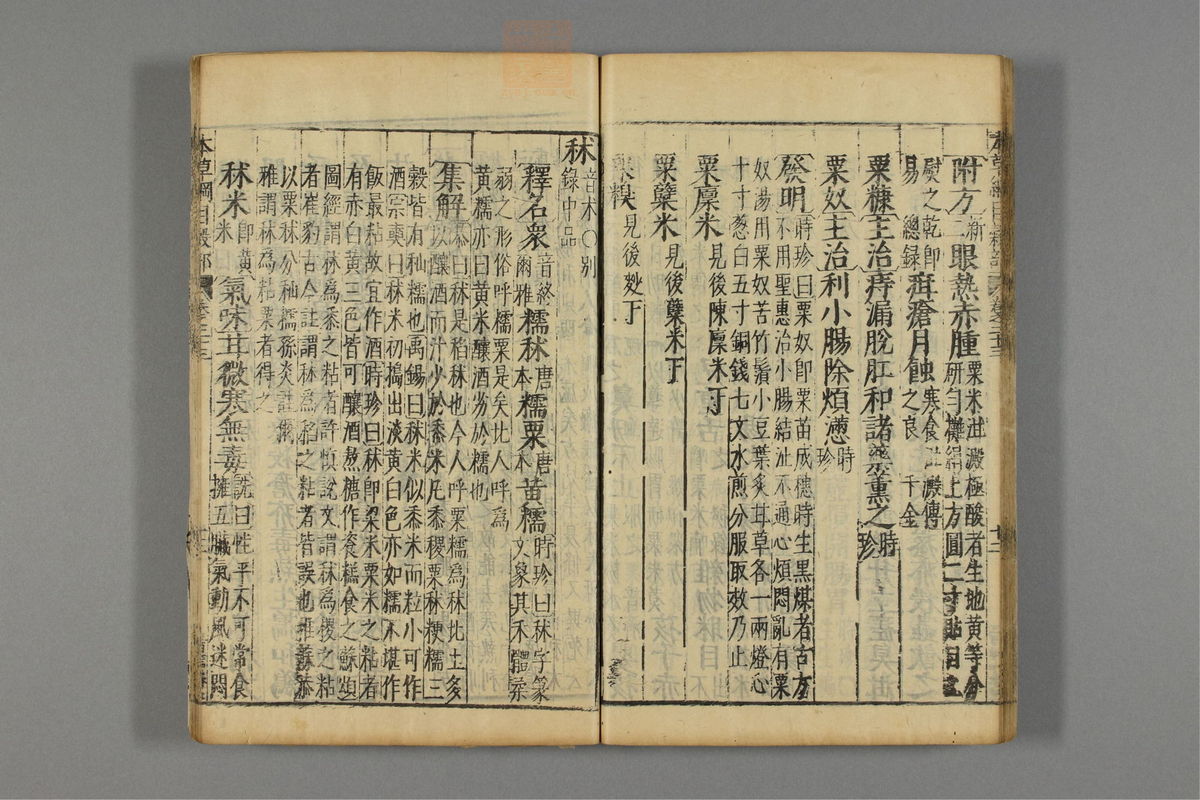 附方新二眼熱赤腫粟米泔澱極酸者生地黄等分
研勻攤絹上方圓二寸貼目上
熨之乾即
易總錄疳瘡月蝕寒食泔澱傅
之良千金
粟糠主治痔漏脫肛和諸藥薰之時珍
粟奴主治利小腸除煩懣時珍
發明時珍曰粟奴即粟苗成穗時生黑煤者古方
不用聖惠治小腸結澁不通心煩悶亂有粟
奴湯用粟奴苦竹鬚小豆葉炙甘草各一兩燈心
十寸葱白五寸銅錢七文水煎分服取效乃止
粟廩米見後陳廩米下
粟糵米見後糵米下
粟糗見後麨下
秫音朮○別
錄中品
釋名衆音終爾雅糯秫唐本糯粟唐本黄糯時珍曰秫字篆
文象其禾體柔
弱之形俗呼糯粟是矣北人呼為
黄糯亦曰黄米釀酒劣於糯也
集解恭曰秫是稻秫也今人呼粟糯為秫北土多
以釀酒而汁少於黍米凡黍稷粟秫粳糯三
穀皆有秈糯也禹錫曰秫米似黍米而粒小可作
酒宗奭曰秫米初搗出淡黄白色亦如糯不堪作
飯最粘故宜作酒時珍曰秫即粱米粟米之粘者
有赤白黄三色皆可釀酒熬糖作餈糕食之蘇頌
圖經謂秫為黍之粘者許慎說文謂秫為稷之粘
者崔豹古今註謂秫為稻之粘者皆誤也惟蘇恭
以粟秫分秈糯孫炎註爾
雅謂秫為粘粟者得之
秫米即黄米氣味甘微寒無毒詵曰性平不可常食
擁五臟氣動風迷悶
本草綱目穀部卷之二十三